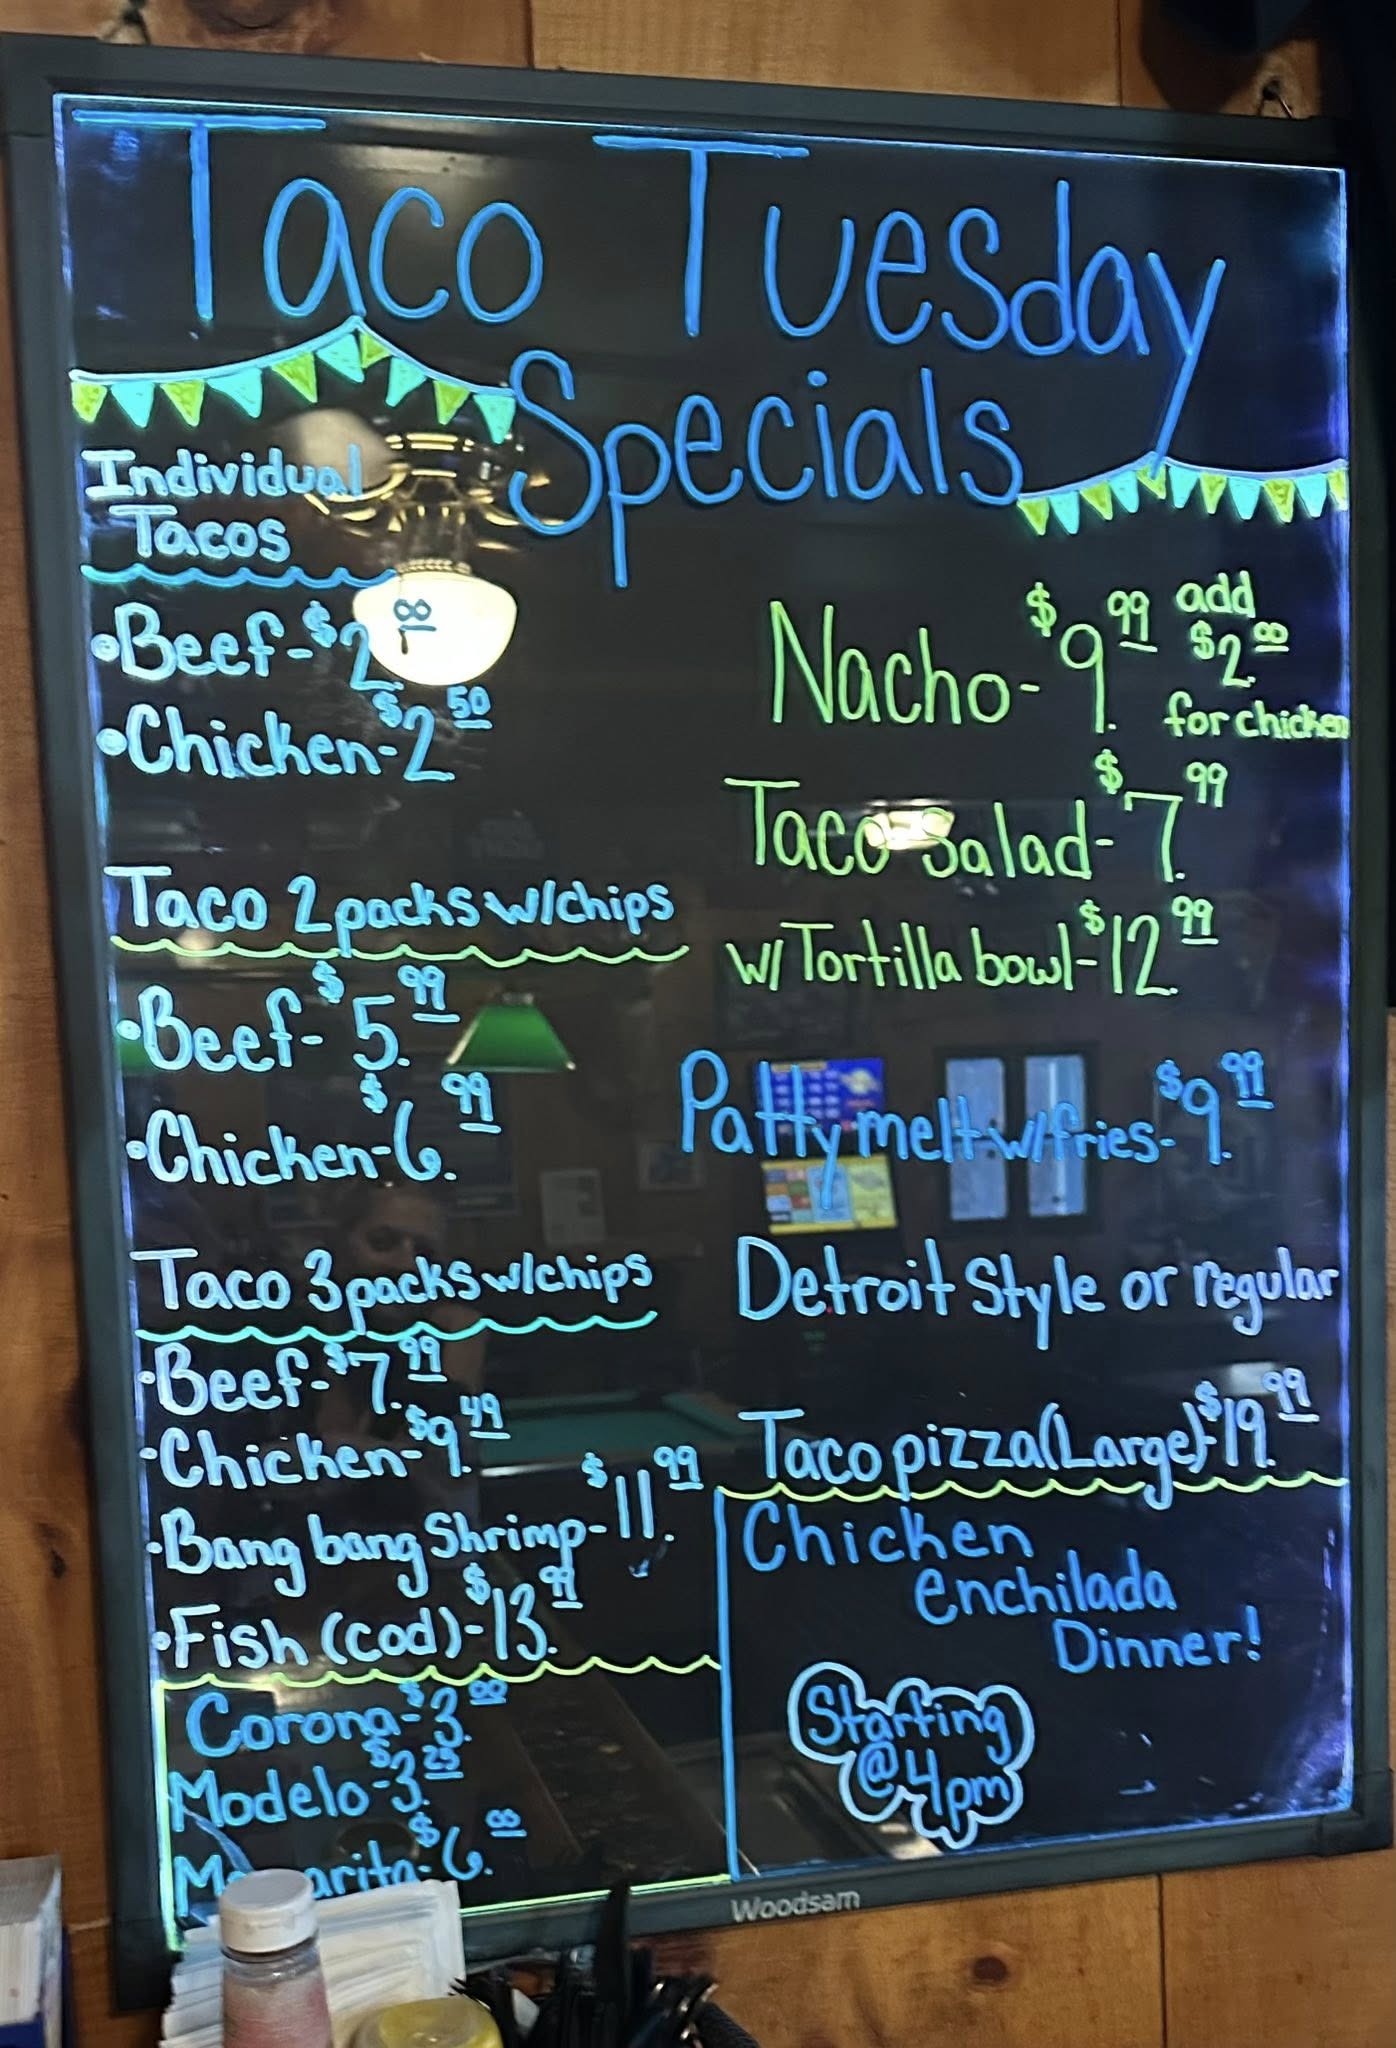 Taco Tuesday
Specials
Individual
Tacos
•Beef-$2.00
•Chicken-$2.50
Taco 2packs w/chips
•Beef-$5.99
•Chicken-$6.99
Taco 3packs w/chips
•Beef-$7.99
•Chicken-$9.49
•Bang bang Shrimp-$11.99
•Fish (cod)-$13.99
Corona-$3.00
Modelo-$3.25
Margarita-$6.00
Nacho-$9.99 add
$2.00
for chicken
Taco Salad-$7.99
w/Tortilla bowl-$12.99
Patty melt w/fries-$9.99
Detroit Style or regular
Taco pizza(Large)-$19.99
Chicken
enchilada
Dinner!
Starting
@4pm
Woodsam